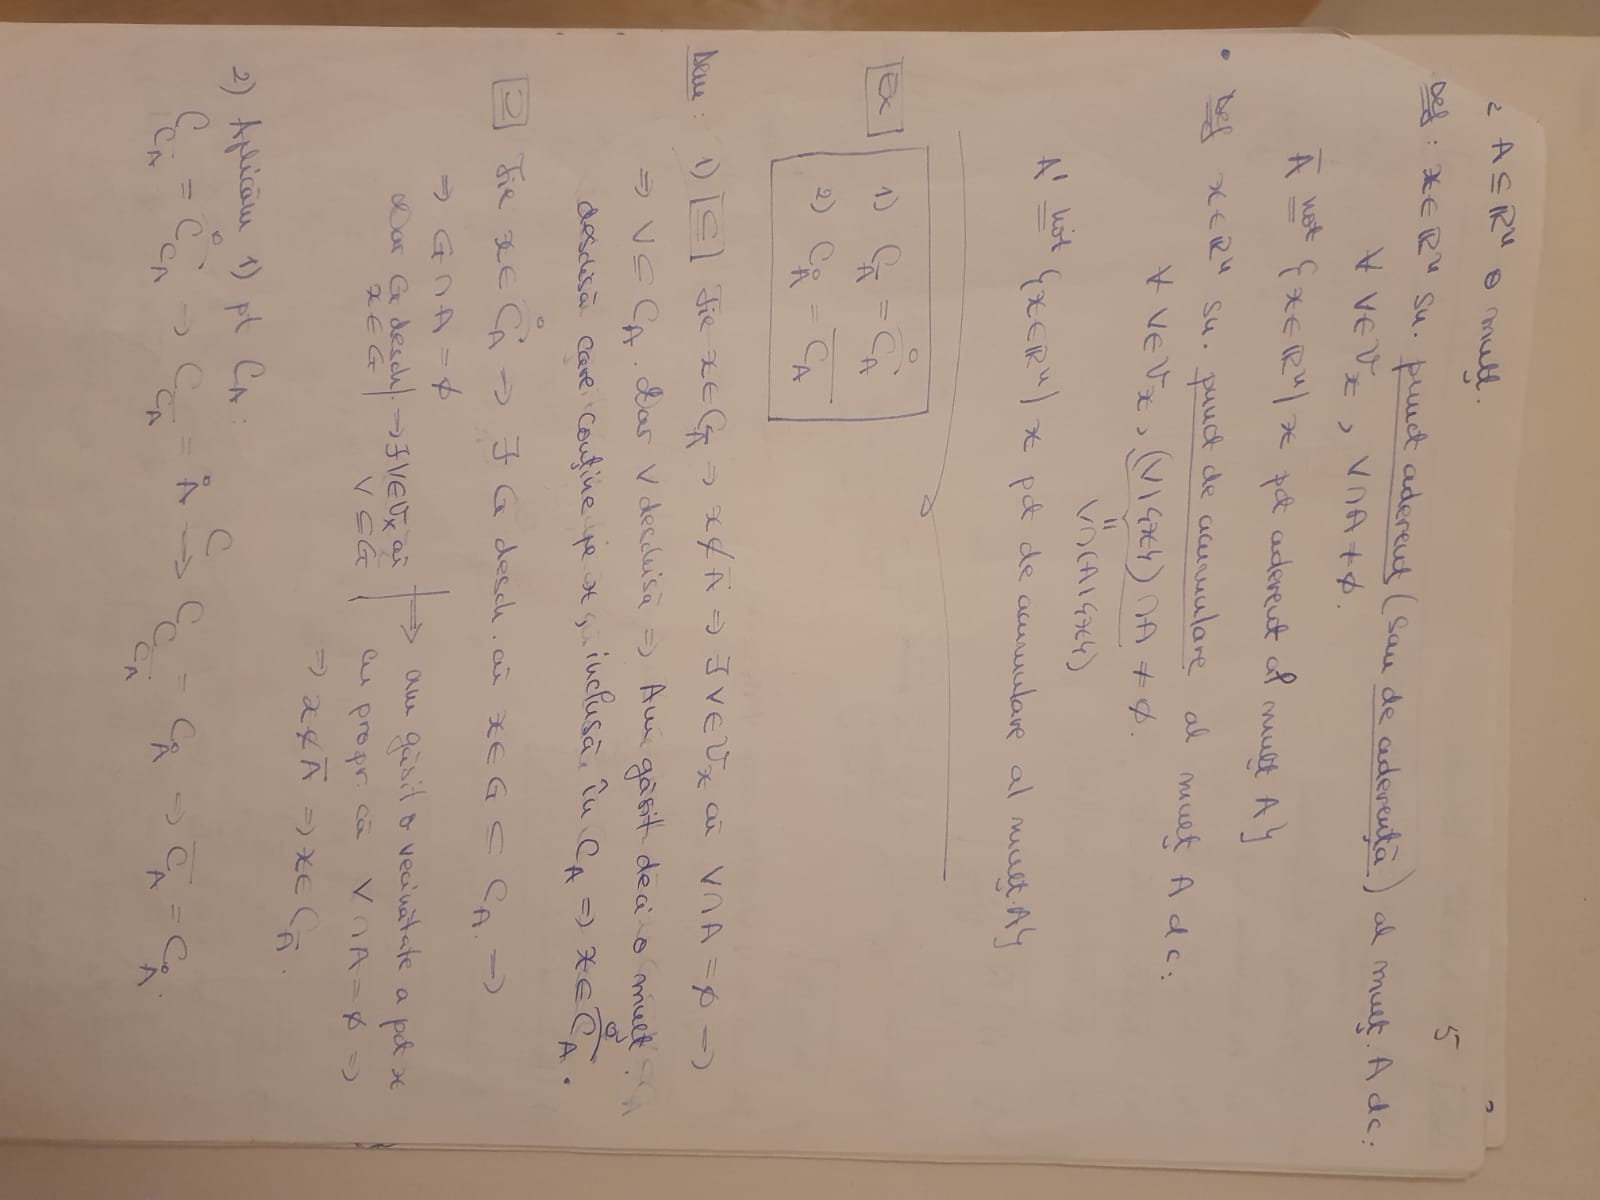 A ⊆ ℝⁿ o mulț.
5
Def: x ∈ ℝⁿ s.n. punct aderent (sau de aderență) al mulț. A dc:
∀ V ∈ 𝒱ₓ, V ∩ A ≠ ∅.
Ā not= {x ∈ ℝⁿ | x pct aderent al mulț A}
• Def x ∈ ℝⁿ s.n. punct de acumulare al mulț A dc:
∀ V ∈ 𝒱ₓ, (V \ {x}) ∩ A ≠ ∅.
=
V ∩ (A \ {x})
A' not= {x ∈ ℝⁿ | x pct de acumulare al mulț. A}
Ex
1) C_Ā = C̊_A
2) C_Å = C̅_A
Dem: 1) ⊆ Fie x ∈ C_Ā ⇒ x ∉ Ā ⇒ ∃ V ∈ 𝒱ₓ aî V ∩ A = ∅ ⇒
⇒ V ⊆ C_A. Dar V deschisă ⇒ Am găsit deci o mulț.
deschisă care conține pe x și inclusă în C_A ⇒ x ∈ C̊_A.
⊇ Fie x ∈ C̊_A ⇒ ∃ G desch. aî x ∈ G ⊆ C_A. ⇒
⇒ G ∩ A = ∅
Dar G desch | ⇒ ∃ V ∈ 𝒱ₓ aî | → am găsit o vecinătate a pct x
x ∈ G | V ⊆ G | cu propr. că V ∩ A = ∅ ⇒
⇒ x ∉ Ā ⇒ x ∈ C_Ā.
2) Aplicăm 1) pt C_A:
C_C̅_A = C̊_C_A ⇒ C_C̅_A = Å ⇒ C_C_C̅_A = C_Å ⇒ C̅_A = C_Å.